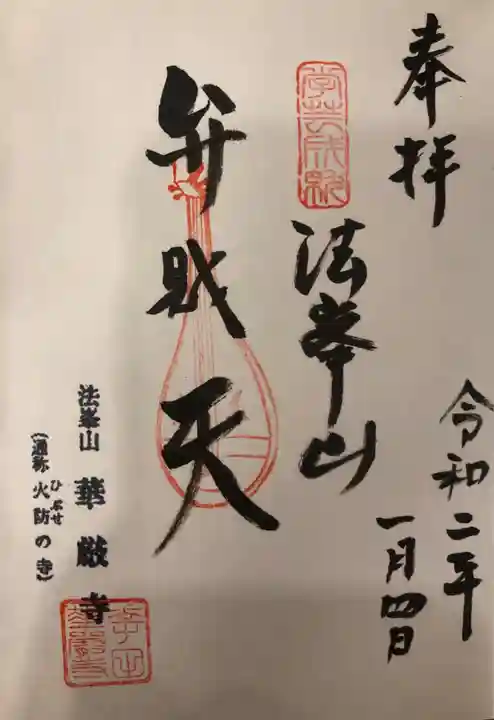 奉拝
令和二年
一月四日
学芸成就
法峯山
弁財天
法峯山 華厳寺
(通称 火防の寺)
ひぶせ